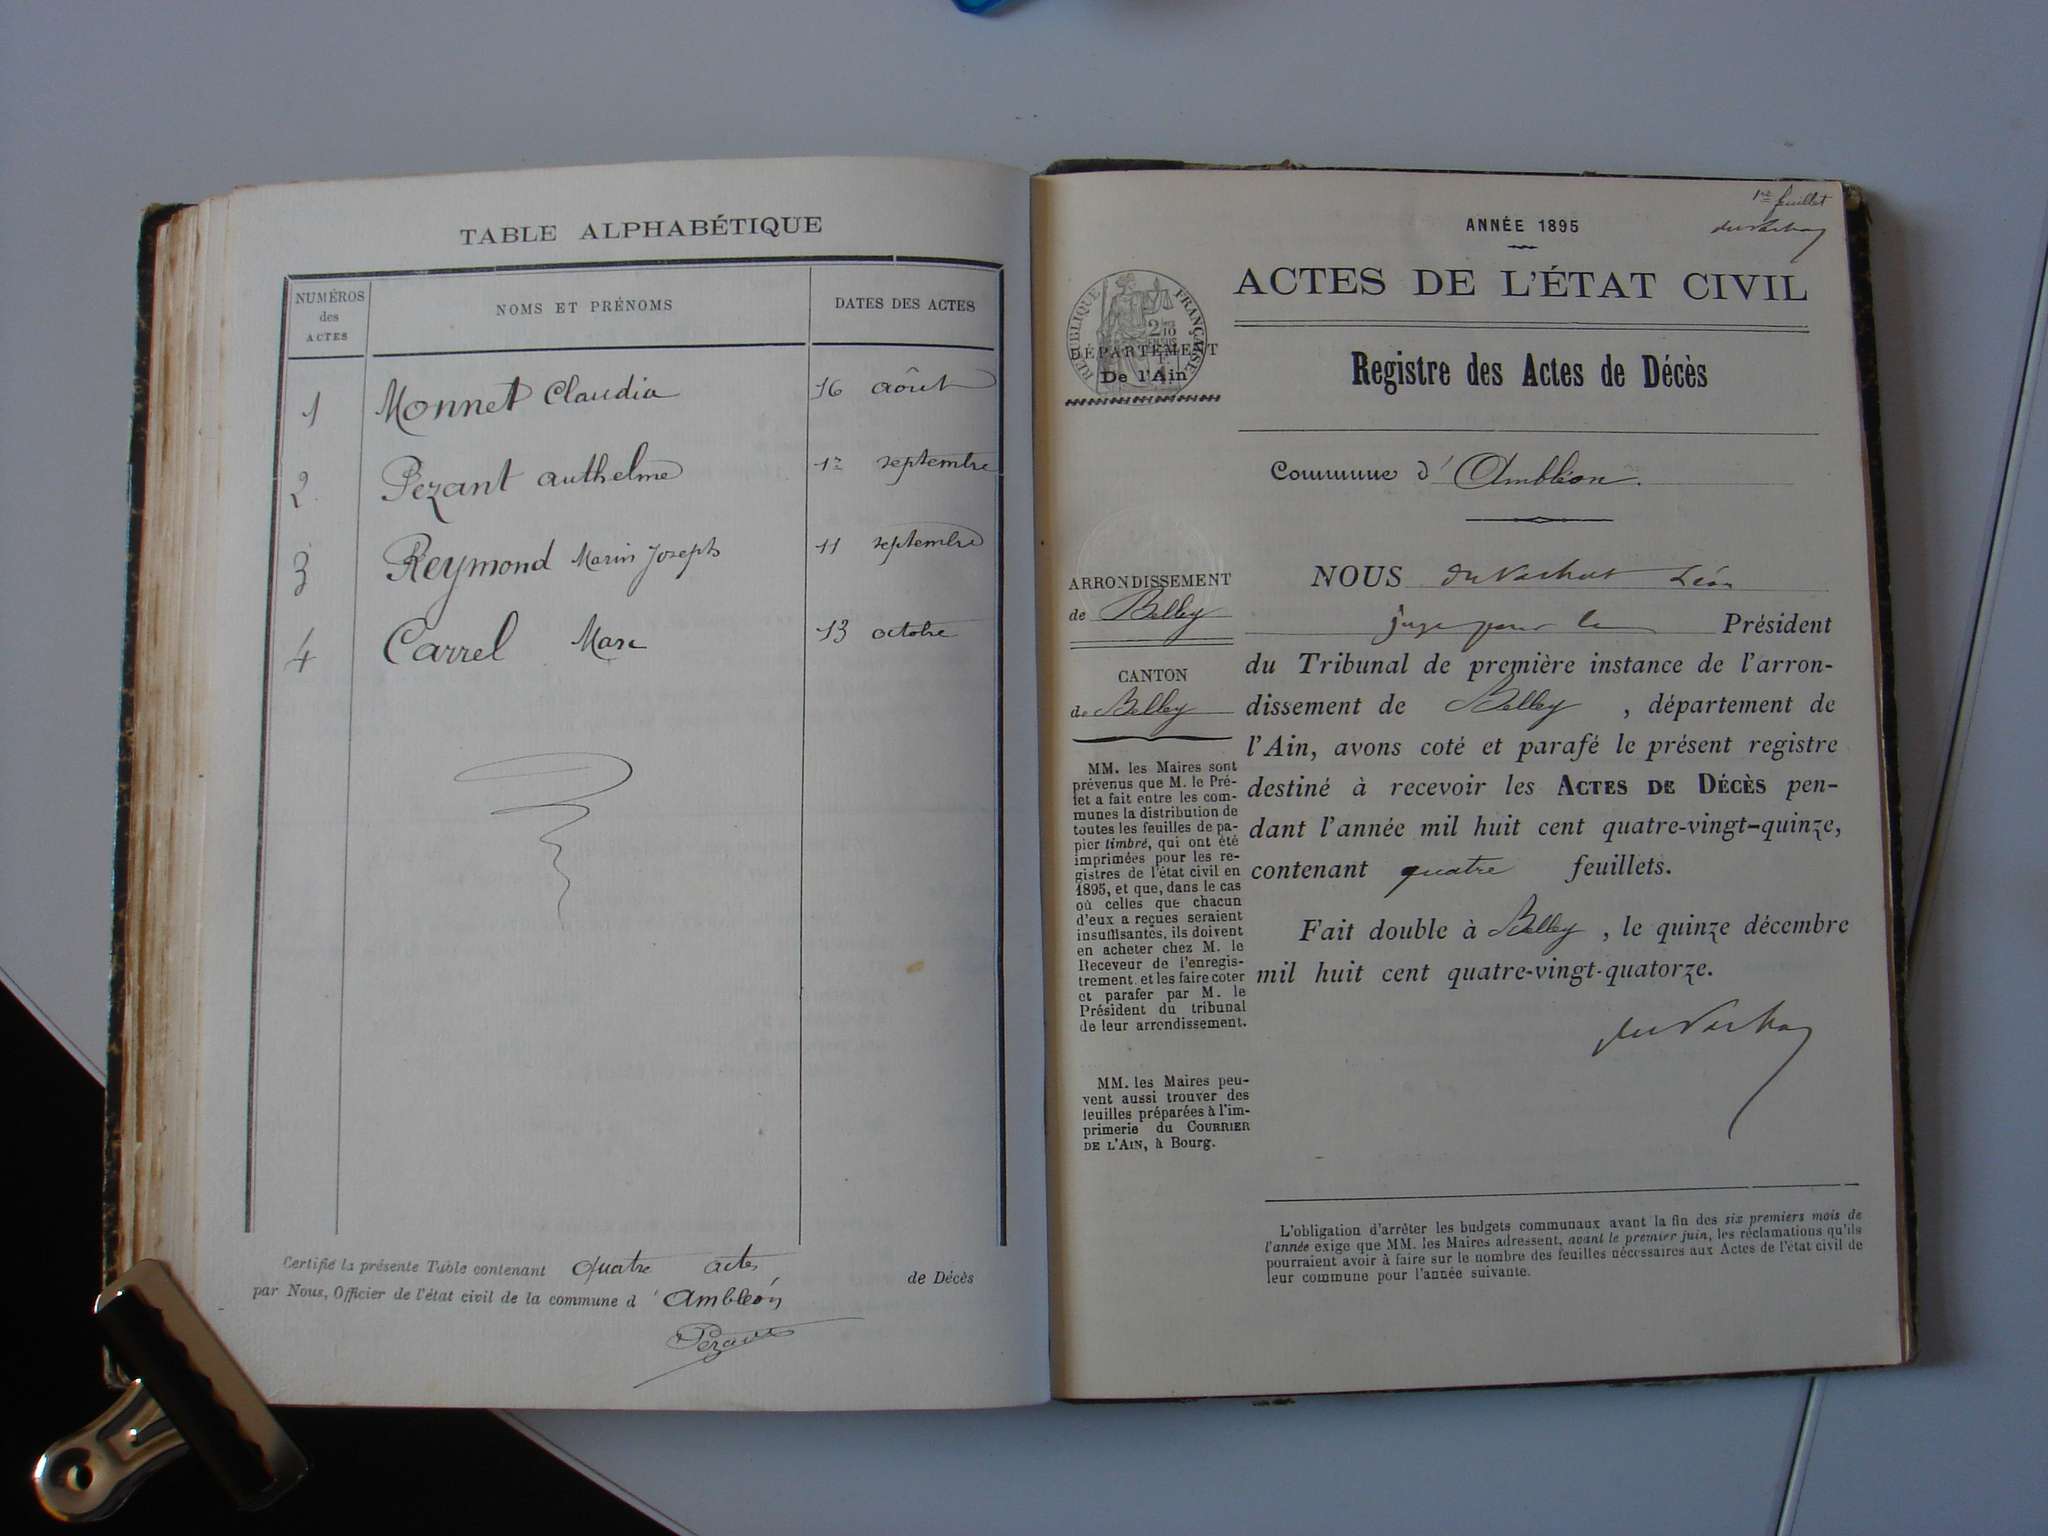 TABLE ALPHABÉTIQUE
NUMÉROS des ACTES
NOMS ET PRÉNOMS
DATES DES ACTES
1 Monnet Claudia 16 août
2 Pezant Authelme 1er septembre
3 Reymond Marin Joseph 11 septembre
4 Carrel Marc 13 octobre
Certifié la présente Table contenant quatre actes de Décès
par Nous, Officier de l'état civil de la commune d' Ambléon
Pezant
1er feuillet
ANNÉE 1895
ACTES DE L'ÉTAT CIVIL
RÉPUBLIQUE FRANÇAISE
DÉPARTEMENT
De l'Ain
Registre des Actes de Décès
Commune d' Ambléon.
ARRONDISSEMENT
de Belley
CANTON
de Belley
MM. les Maires sont
prévenus que M. le Pré-
fet a fait entre les com-
munes la distribution de
toutes les feuilles de pa-
pier timbré, qui ont été
imprimées pour les re-
gistres de l'état civil en
1895, et que, dans le cas
où celles que chacun
d'eux a reçues seraient
insuffisantes, ils doivent
en acheter chez M. le
Receveur de l'enregis-
trement et les faire coter
et parafer par M. le
Président du tribunal
de leur arrondissement.
MM. les Maires peu-
vent aussi trouver des
feuilles préparées à l'im-
primerie du COURRIER
DE L'AIN, à Bourg.
NOUS du Vachat Léon
juge pour le Président
du Tribunal de première instance de l'arron-
dissement de Belley, département de
l'Ain, avons coté et parafé le présent registre
destiné à recevoir les ACTES DE DÉCÈS pen-
dant l'année mil huit cent quatre-vingt-quinze,
contenant quatre feuillets.
Fait double à Belley, le quinze décembre
mil huit cent quatre-vingt-quatorze.
du Vachat
L'obligation d'arrêter les budgets communaux avant la fin des six premiers mois de
l'année exige que MM. les Maires adressent, avant le premier juin, les réclamations qu'ils
pourraient avoir à faire sur le nombre des feuilles nécessaires aux Actes de l'état civil de
leur commune pour l'année suivante.